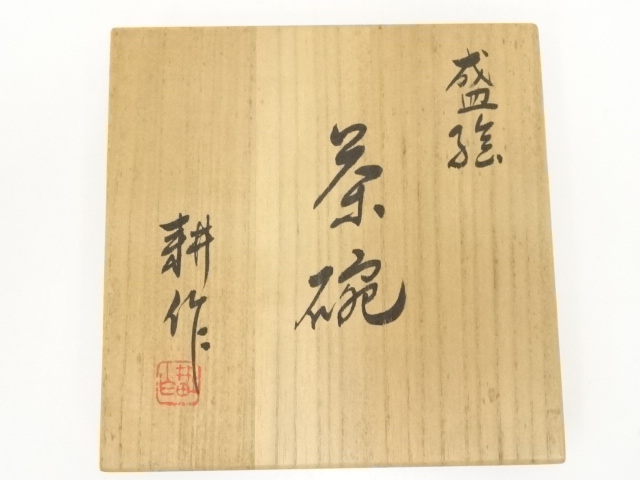 盛絵
茶碗
耕作